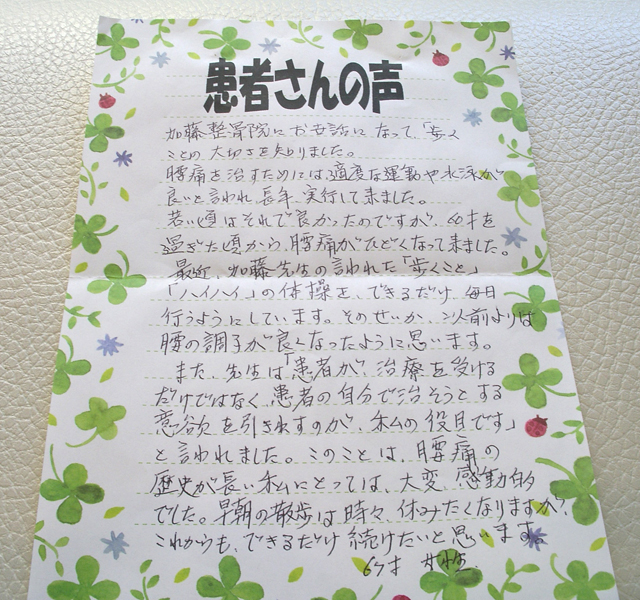 患者さんの声
加藤整骨院にお世話になって、「歩く
ことの大切さを知りました。
腰痛を治すためには、適度な運動や水泳が
良いと言われ、長年、実行して来ました。
若い頃はそれで良かったのですが、60才を
過ぎた頃から、腰痛がひどくなって来ました。
最近、加藤先生の言われた「歩くこと」
「ハイハイ」の体操を、できるだけ毎日
行うようにしています。そのせいか、以前よりは
腰の調子が良くなったように思います。
また、先生は「患者が、治療を受ける
だけではなく、患者の自分で治そうとする
意欲を引き出すのが、私の役目です」
と言われました。このことは、腰痛の
歴史が長い私にとっては、大変、感動的
でした。早朝の散歩は時々、休みたくなりますが、
これからも、できるだけ続けたいと思います。
67才